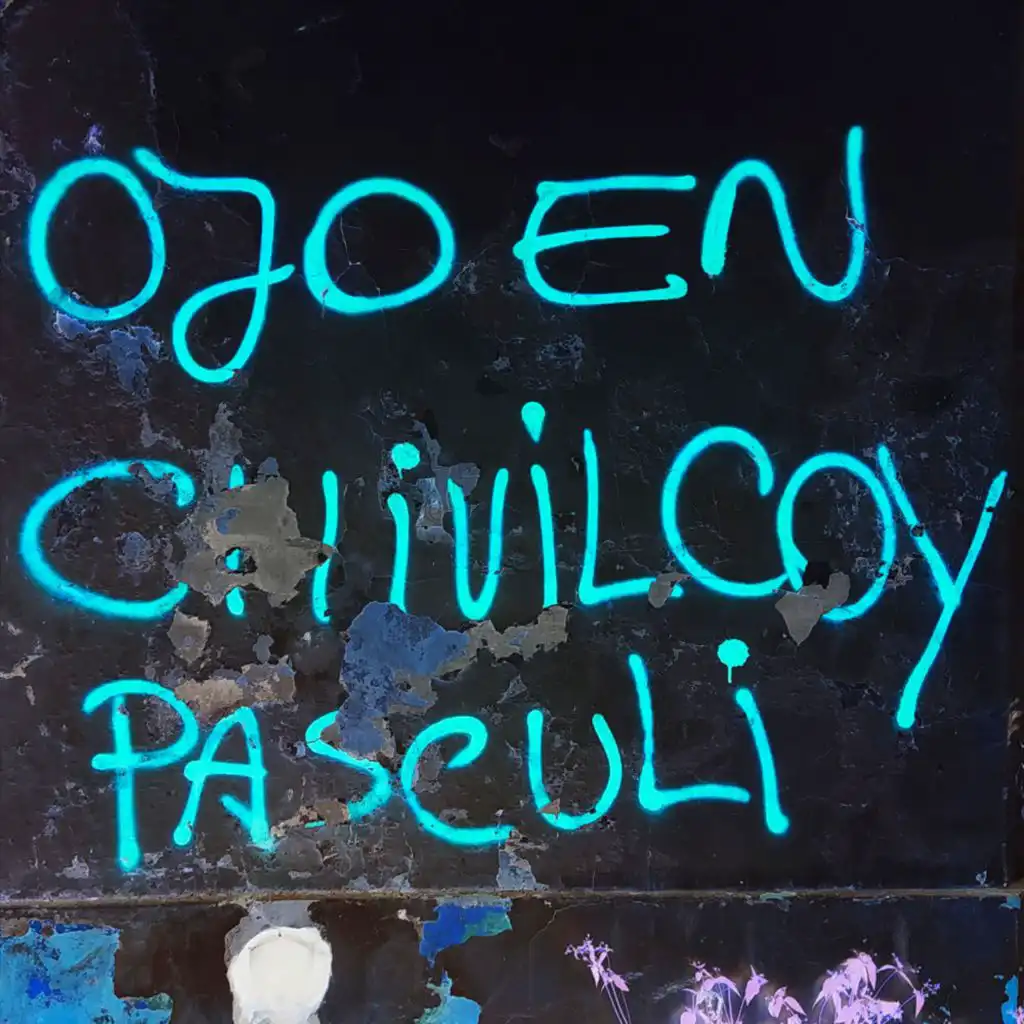 OJO EN
CHiViLCOY
PASCULi